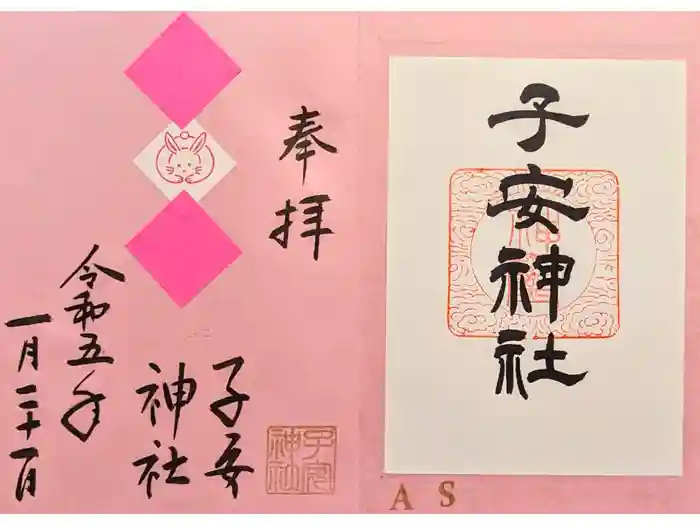 子安神社
奉拝
子安
神社
令和五年
一月二十一日
子安
神社
A S